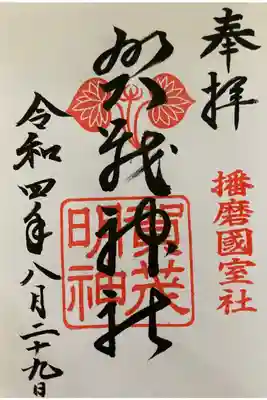 奉拝
播磨國室社
賀茂神社
賀茂
明神
令和四年八月二十九日